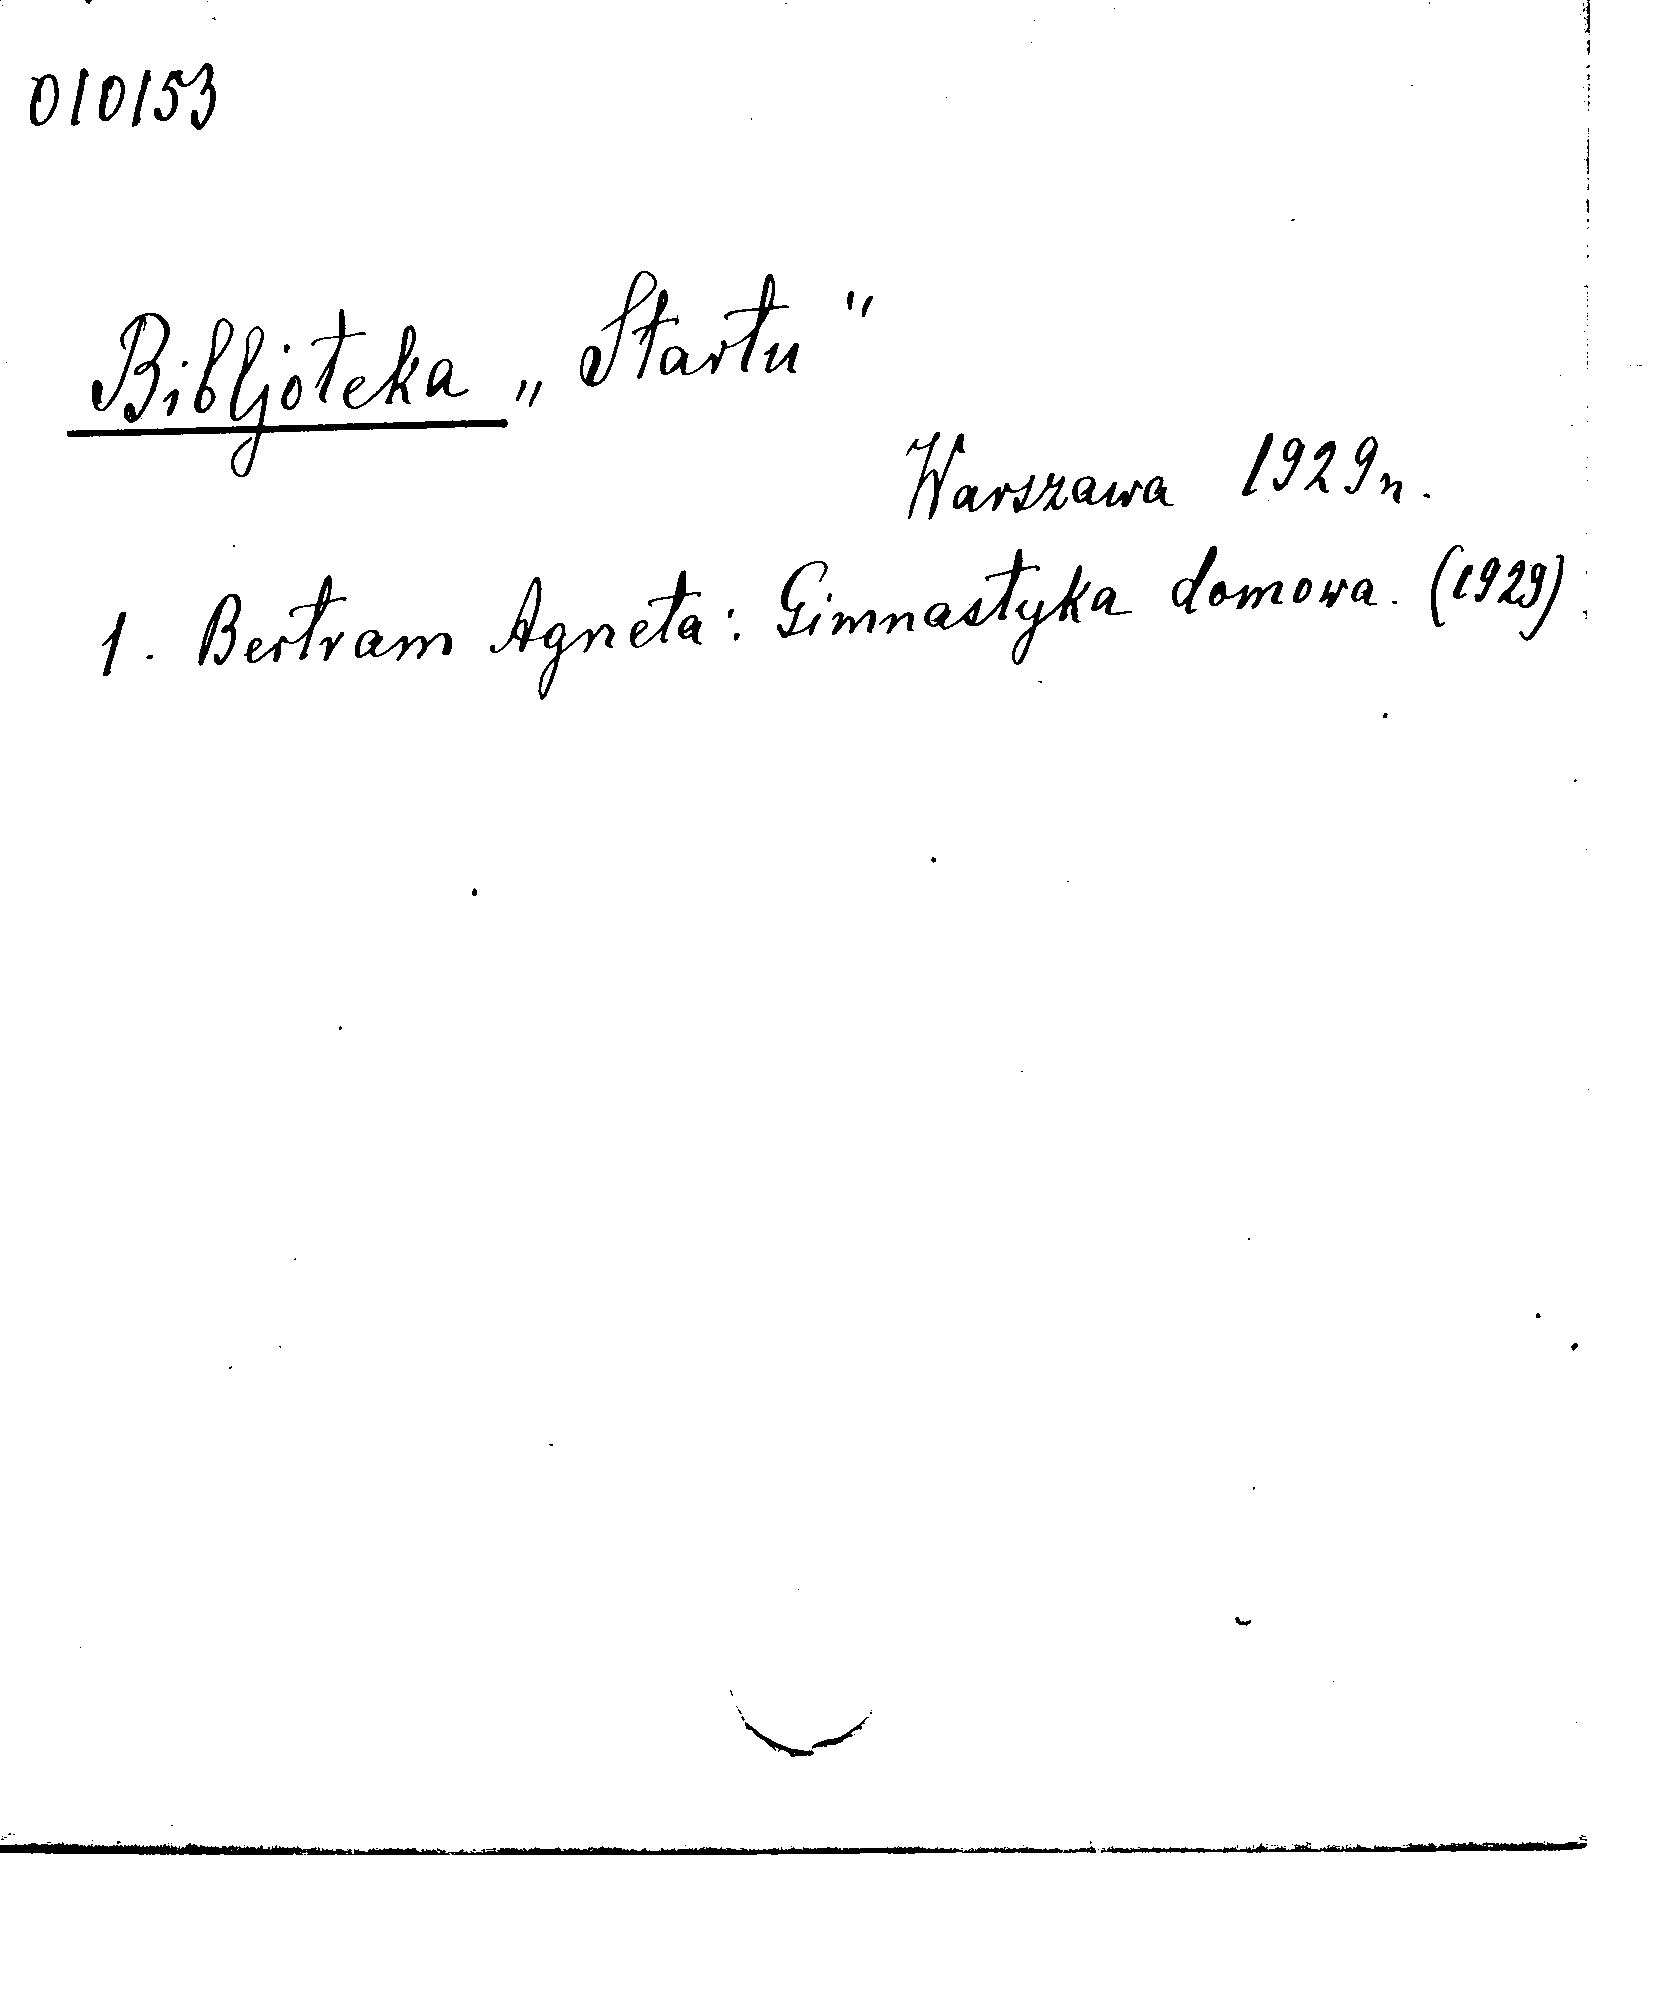 010153
Bibljoteka „Startu"
Warszawa 1929 r.
1. Bertram Agneta: Gimnastyka domowa. (1929)